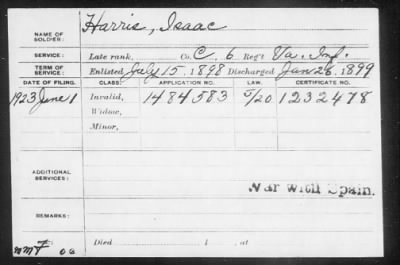 NAME OF SOLDIER: Harris, Isaac
SERVICE: Late rank, Co. C, 6 Reg't Va. Inf.
TERM OF SERVICE: Enlisted July 15, 1898 Discharged Jan 26, 1899
DATE OF FILING. CLASS. APPLICATION NO. LAW. CERTIFICATE NO.
1923 June 1 Invalid, 1484583 5/20 1232478
Widow,
Minor,
ADDITIONAL SERVICES:
War with Spain.
REMARKS:
Died , 1 , at